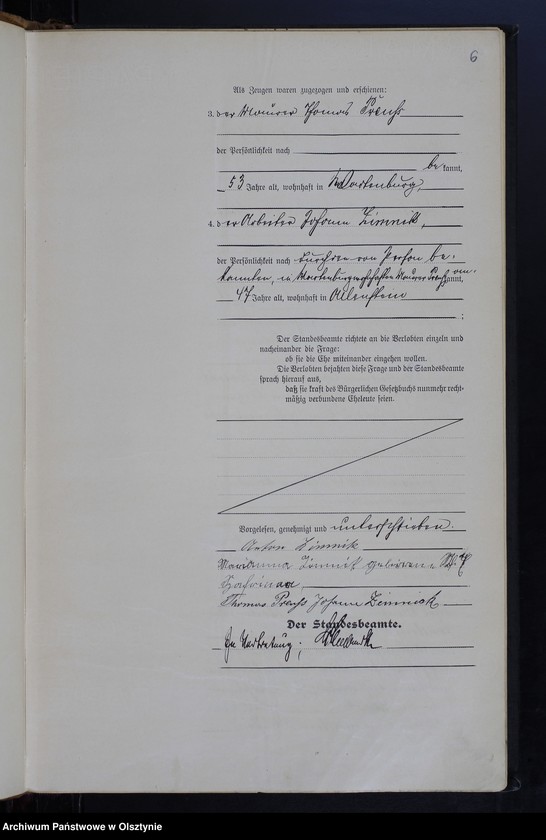 6
Als Zeugen waren zugezogen und erschienen:
3. der Maurer Thomas Preuß
der Persönlichkeit nach
be kannt,
53 Jahre alt, wohnhaft in Wartenburg,
4. der Arbeiter Johann Zimnik,
der Persönlichkeit nach durch den von Person be-
kannten, in Wartenburg wohnhaften Maurer Preuß aner kannt,
47 Jahre alt, wohnhaft in Allenstein
;
Der Standesbeamte richtete an die Verlobten einzeln und
nacheinander die Frage:
ob sie die Ehe miteinander eingehen wollen.
Die Verlobten bejahten diese Frage und der Standesbeamte
sprach hierauf aus,
daß sie kraft des Bürgerlichen Gesetzbuchs nunmehr recht-
mäßig verbundene Eheleute seien.
Vorgelesen, genehmigt und unterschrieben.
Anton Zimnik
Marianna Zimnik geborene
Thomas Preuß Johann Zimnick
Der Standesbeamte.
In Vertretung:
Archiwum Państwowe w Olsztynie